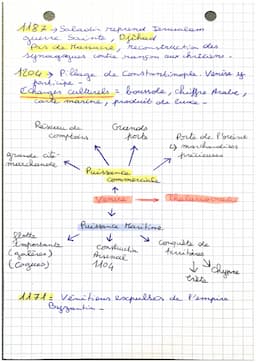 1187 → Saladin reprend Jerusalem
guerre Sainte, Djihad
Pas de Massacre, reconstruction des
synagogues contre rançon aux chrétiens.
1204 → Pillage de Constantinople. Venise y
participe.
Echanges culturels = boussole, chiffre Arabe,
carte marine, produit de luxe.
Réseau de
comptoirs
Grands
ports
Porte de l'orient
↳ marchandises
précieuses
grande cité
marchande
Puissance
commerciale
Venise → Thalassocratie
Puissance Maritime
flotte
importante
(galères)
(Cogues)
Construction
Arsenal
1104
Conquête de
territoires
Crète
Chypre
1171 = Vénitiens expulsés de l'empire
Byzantin.